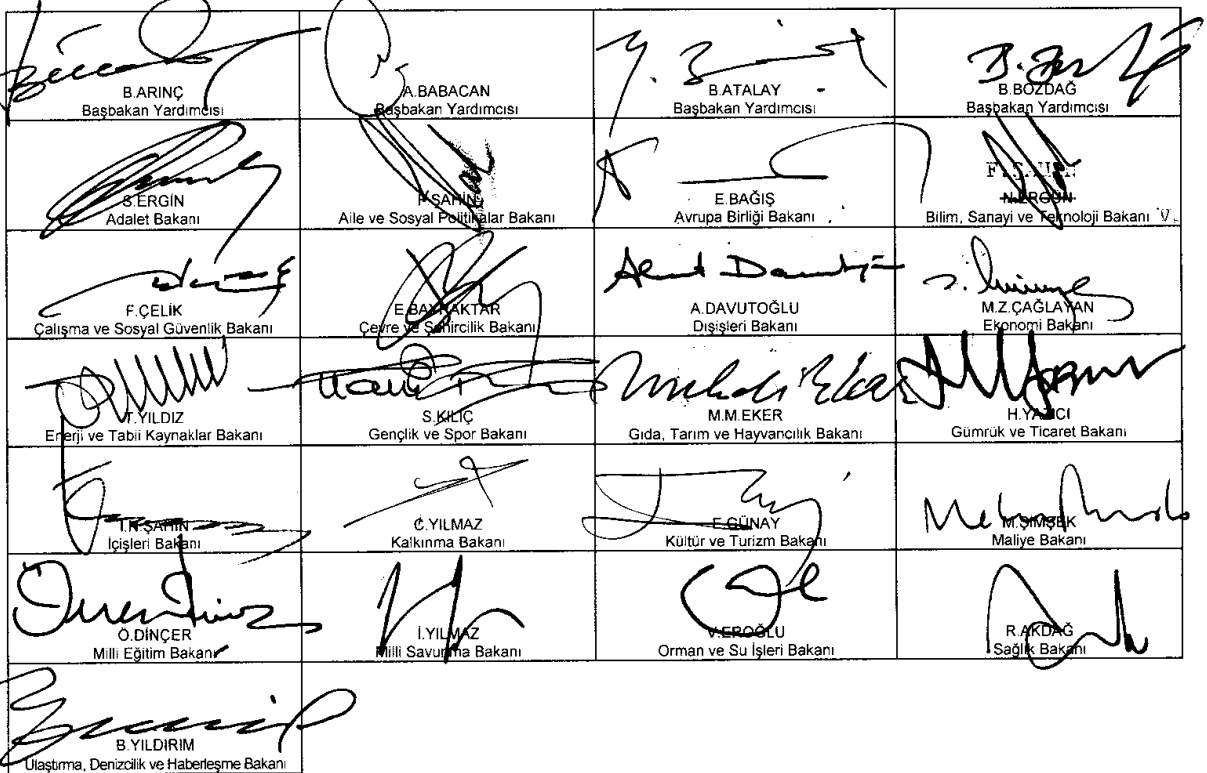 B.ARINÇ
Başbakan Yardımcısı
A.BABACAN
Başbakan Yardımcısı
B.ATALAY
Başbakan Yardımcısı
B.BOZDAĞ
Başbakan Yardımcısı
S.ERGİN
Adalet Bakanı
F.ŞAHİN
Aile ve Sosyal Politikalar Bakanı
E.BAĞIŞ
Avrupa Birliği Bakanı
F.ŞAHİN
N.ERGÜN
Bilim, Sanayi ve Teknoloji Bakanı V.
F.ÇELİK
Çalışma ve Sosyal Güvenlik Bakanı
E.BAYRAKTAR
Çevre ve Şehircilik Bakanı
A.DAVUTOĞLU
Dışişleri Bakanı
M.Z.ÇAĞLAYAN
Ekonomi Bakanı
T.YILDIZ
Enerji ve Tabii Kaynaklar Bakanı
S.KILIÇ
Gençlik ve Spor Bakanı
M.M.EKER
Gıda, Tarım ve Hayvancılık Bakanı
H.YAZICI
Gümrük ve Ticaret Bakanı
İ.N.ŞAHİN
İçişleri Bakanı
C.YILMAZ
Kalkınma Bakanı
E.GÜNAY
Kültür ve Turizm Bakanı
M.ŞİMŞEK
Maliye Bakanı
Ö.DİNÇER
Milli Eğitim Bakanı
İ.YILMAZ
Milli Savunma Bakanı
V.EROĞLU
Orman ve Su İşleri Bakanı
R.AKDAĞ
Sağlık Bakanı
B.YILDIRIM
Ulaştırma, Denizcilik ve Haberleşme Bakanı